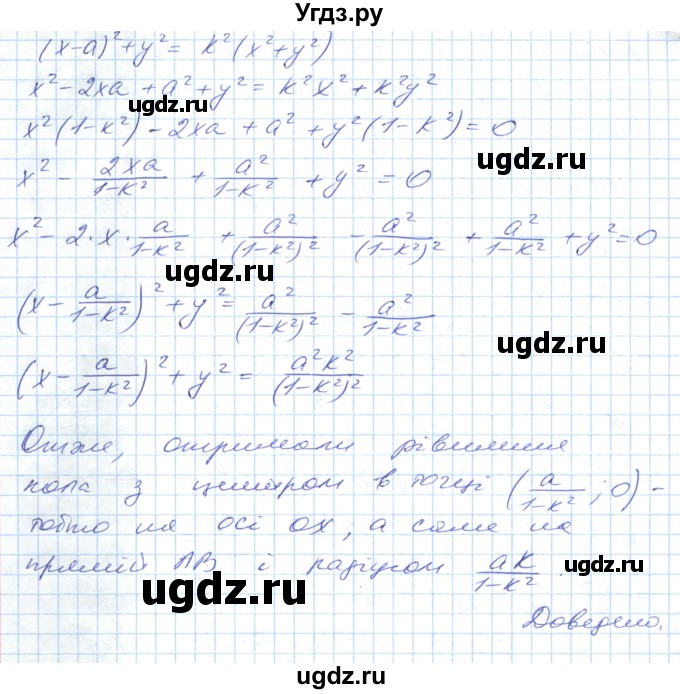 Угдз.ру
(x-a)²+y²= k²(x²+y²)
x²-2xa+a²+y²=k²x²+k²y²
ugdz.ru ugdz.ru
x²(1-k²)-2xa+a²+y²(1-k²)=0
x² - 2xa/(1-k²) + a²/(1-k²) + y² = 0
ugdz.ru
x²-2·x·a/(1-k²) + a²/(1-k²)² - a²/(1-k²)² + a²/(1-k²) + y²=0
ugdz.ru
(x - a/(1-k²))² + y² = a²/(1-k²)² - a²/(1-k²)
ugdz.ru
(x - a/(1-k²))² + y² = a²k²/(1-k²)²
ugdz.ru
Отже, отримали рівняння
кола з центром в точці (a/(1-k²); 0) -
ugdz.ru
тобто на осі OX, а саме на
прямій AB і радіусом ak/(1-k²).
ugdz.ru
ugdz.ru
Доведено.
ugdz.ru